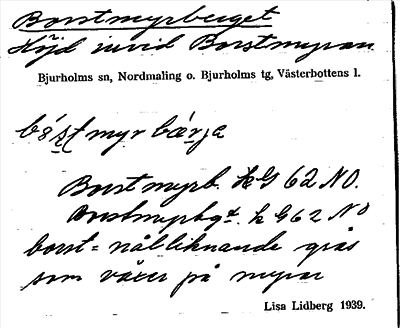 Borstmyrberget
Höjd invid Borstmyran
Bjurholms sn, Nordmaling o. Bjurholms tg, Västerbottens l.
bó̱s̱t myr bæṟja
Borstmyrb. kG 62 NO.
Borstmyrbgt. k G 62 NO
borst = nålliknande gräs
som växer på myrar
Lisa Lidberg 1939.